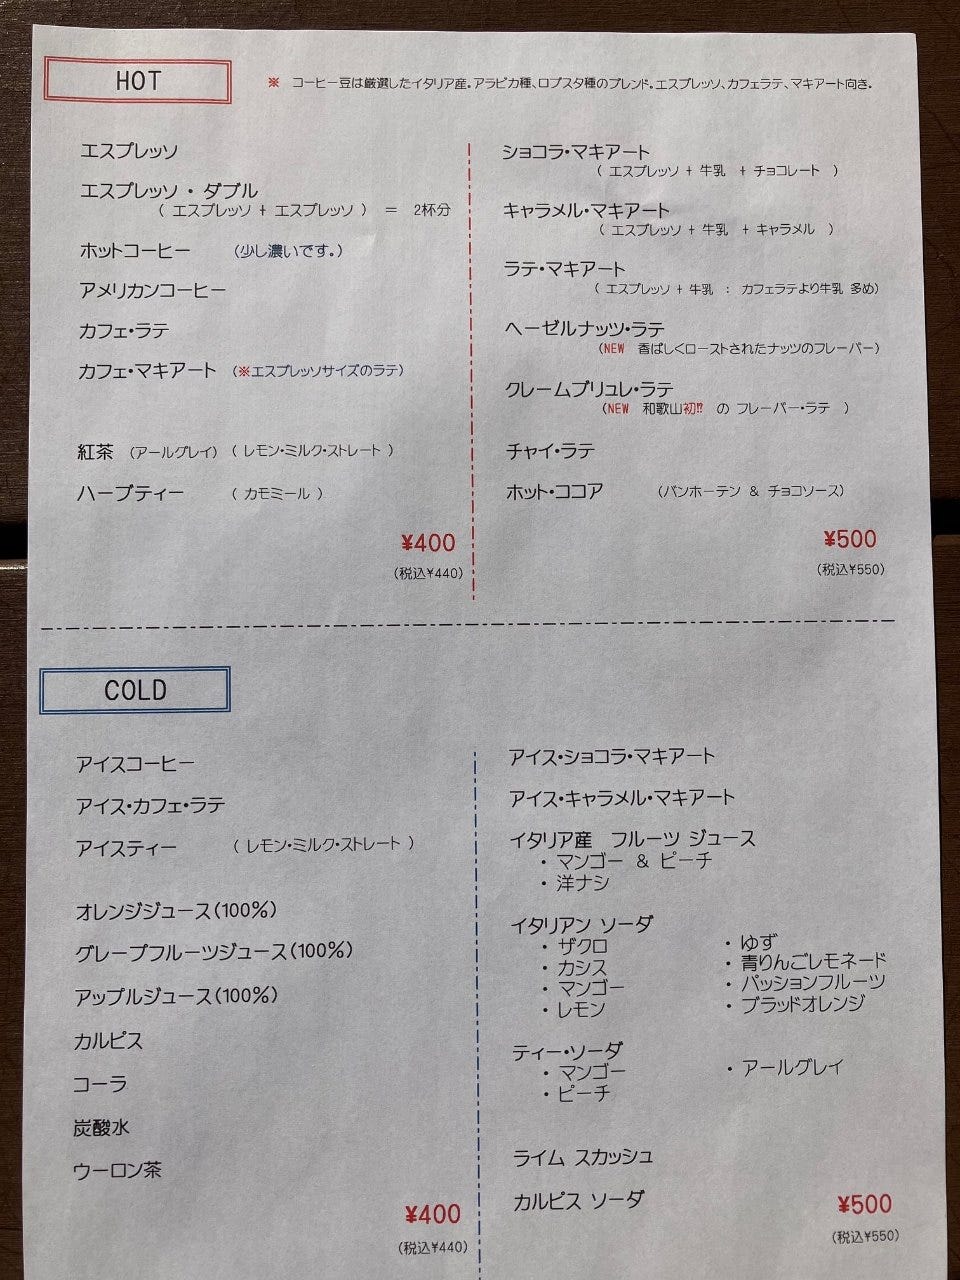 HOT
※ コーヒー豆は厳選したイタリア産。アラビカ種、ロブスタ種のブレンド。エスプレッソ、カフェラテ、マキアート向き。
エスプレッソ
エスプレッソ・ダブル
( エスプレッソ + エスプレッソ ) = 2杯分
ホットコーヒー (少し濃いです。)
アメリカンコーヒー
カフェ・ラテ
カフェ・マキアート (※エスプレッソサイズのラテ)
紅茶 (アールグレイ) ( レモン・ミルク・ストレート )
ハーブティー ( カモミール )
¥400
(税込¥440)
ショコラ・マキアート
( エスプレッソ + 牛乳 + チョコレート )
キャラメル・マキアート
( エスプレッソ + 牛乳 + キャラメル )
ラテ・マキアート
( エスプレッソ + 牛乳 : カフェラテより牛乳 多め)
ヘーゼルナッツ・ラテ
(NEW 香ばしくローストされたナッツのフレーバー)
クレームブリュレ・ラテ
(NEW 和歌山初⁉ の フレーバー・ラテ )
チャイ・ラテ
ホット・ココア (バンホーテン & チョコソース)
¥500
(税込¥550)
COLD
アイスコーヒー
アイス・カフェ・ラテ
アイスティー ( レモン・ミルク・ストレート )
オレンジジュース(100%)
グレープフルーツジュース(100%)
アップルジュース(100%)
カルピス
コーラ
炭酸水
ウーロン茶
¥400
(税込¥440)
アイス・ショコラ・マキアート
アイス・キャラメル・マキアート
イタリア産 フルーツ ジュース
・マンゴー & ピーチ
・洋ナシ
イタリアン ソーダ
・ザクロ ・ゆず
・カシス ・青りんごレモネード
・マンゴー ・パッションフルーツ
・レモン ・ブラッドオレンジ
ティー・ソーダ
・マンゴー ・アールグレイ
・ピーチ
ライム スカッシュ
カルピス ソーダ
¥500
(税込¥550)